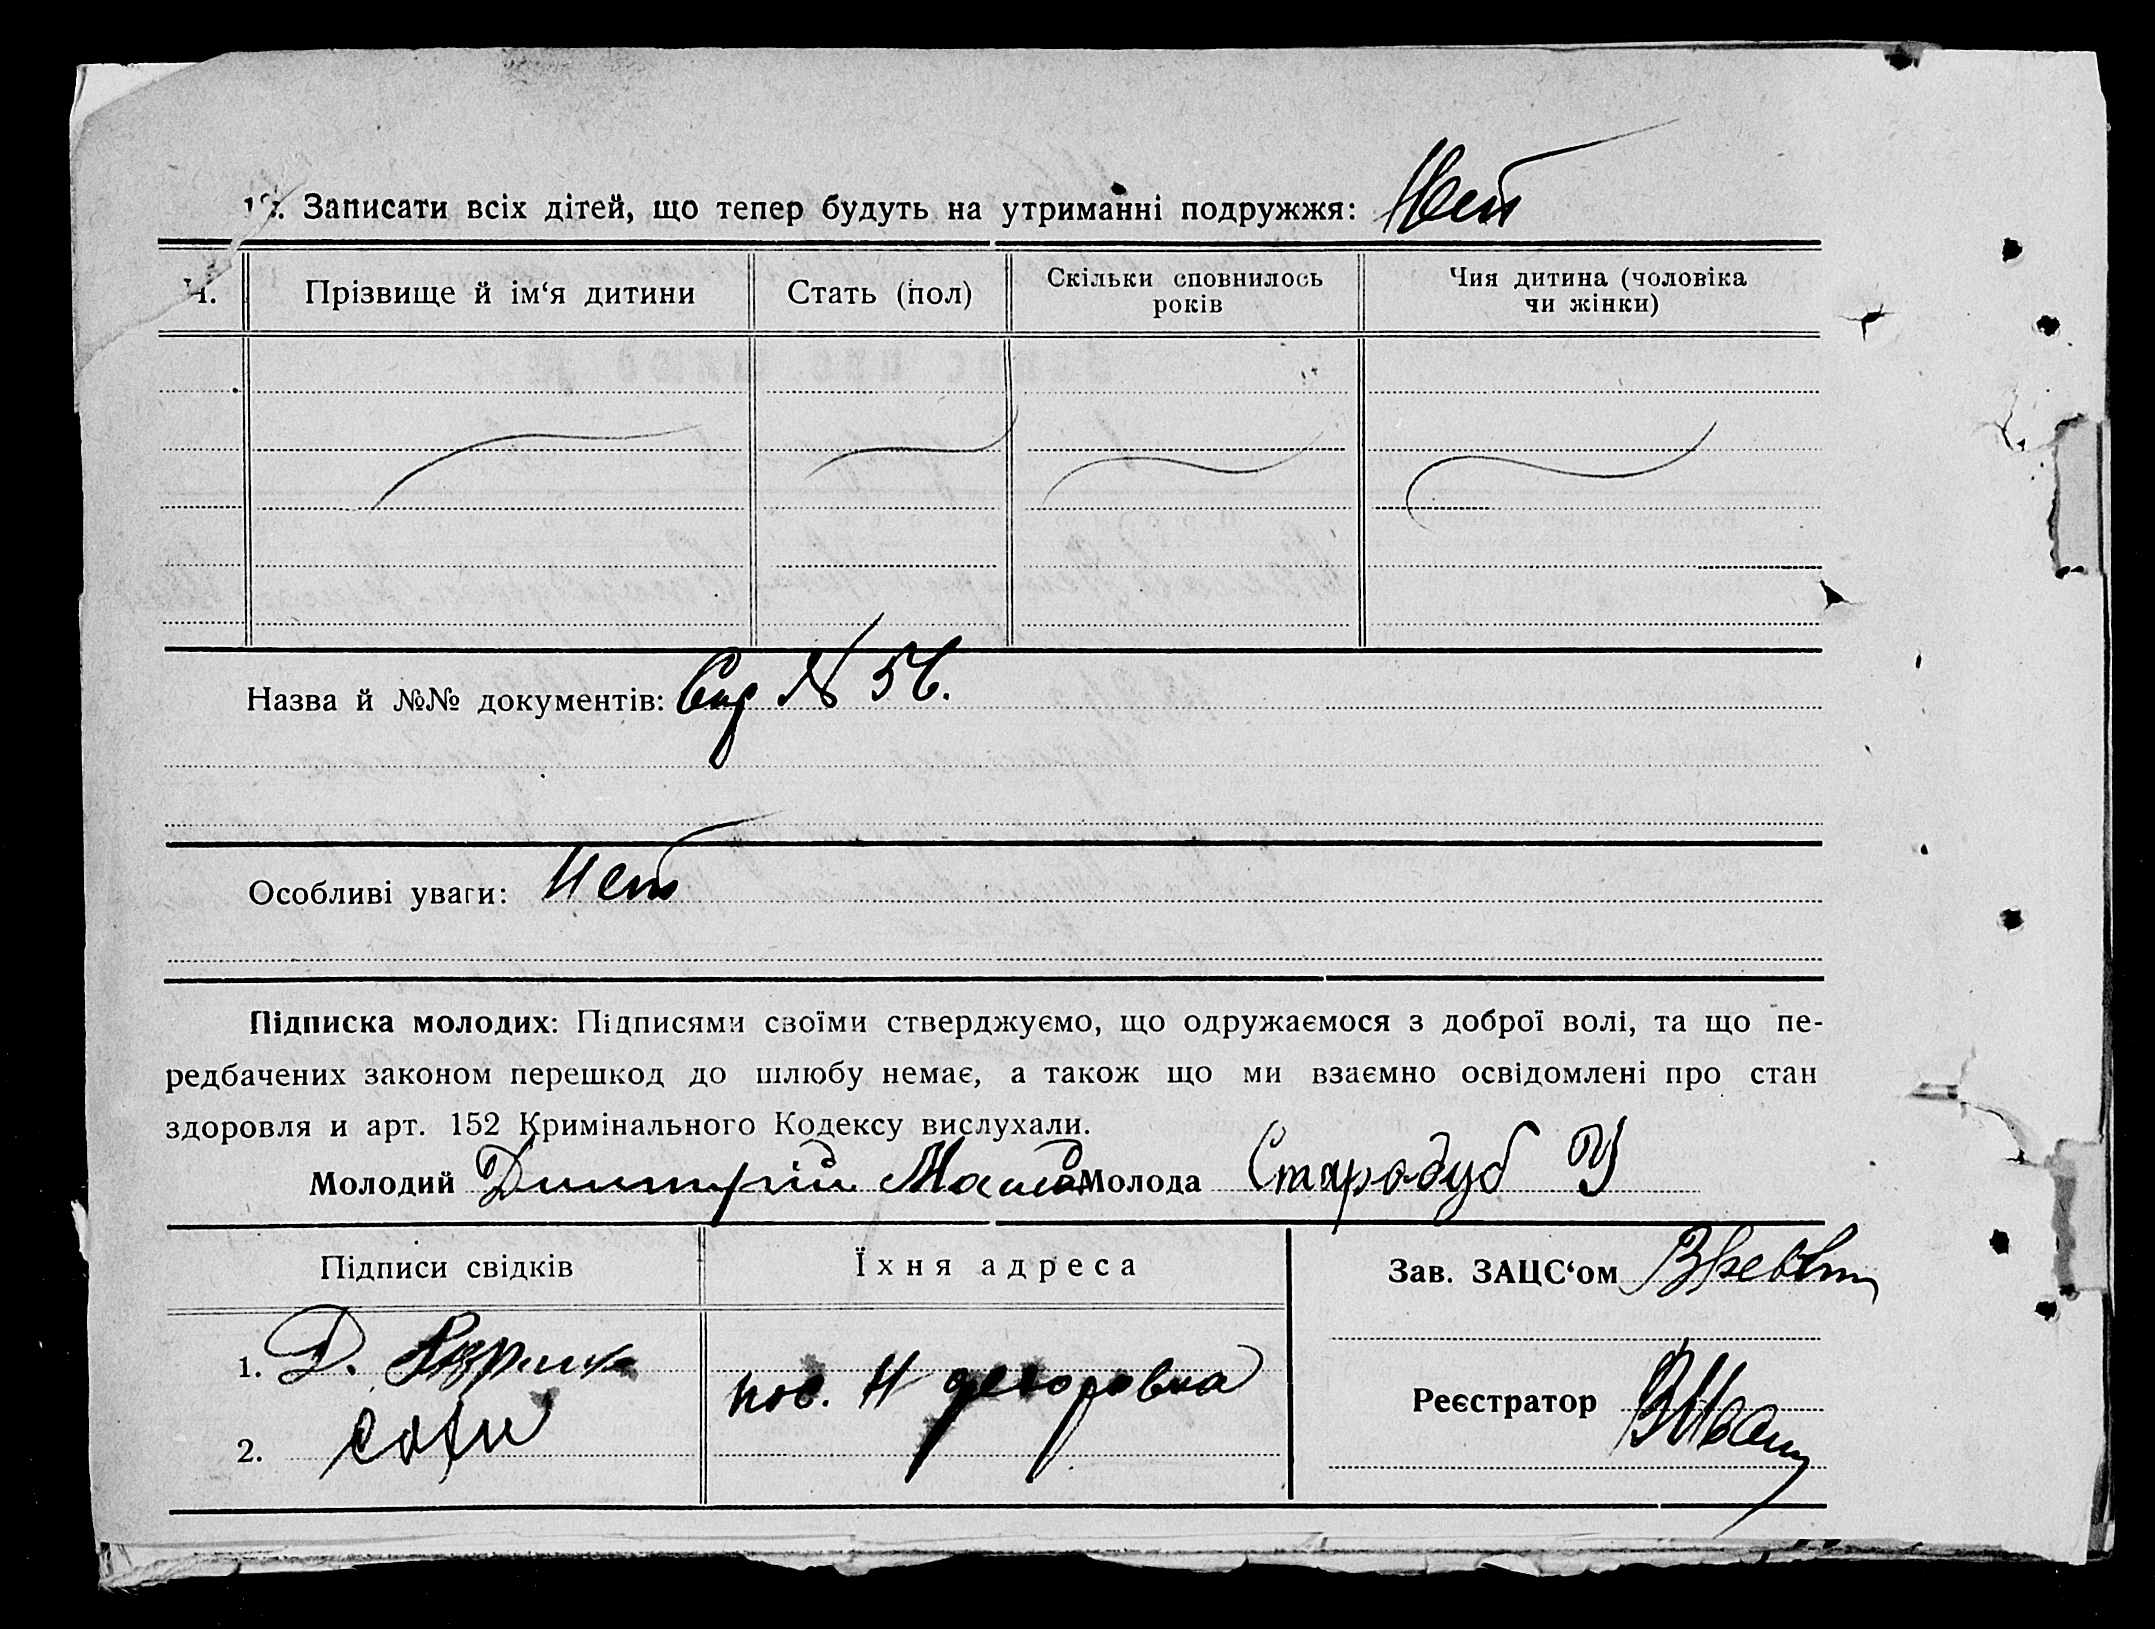 Записати всіх дітей, що тепер будуть на утриманні подружжя: Нет
Ч. Прізвище й ім‘я дитини Стать (пол) Скільки сповнилось років Чия дитина (чоловіка чи жінки)
Назва й №№ документів: № 56.
Особливі уваги: Нет
Підписка молодих: Підписями своїми стверджуємо, що одружаємося з доброї волі, та що пе-
редбачених законом перешкод до шлюбу немає, а також що ми взаємно освідомлені про стан
здоровля и арт. 152 Кримінального Кодексу вислухали.
Молодий Димитрій Молода Стародуб У
Підписи свідків Їхня адреса Зав. ЗАЦС‘ом
1. Д.
пос. Н
Реєстратор
2.